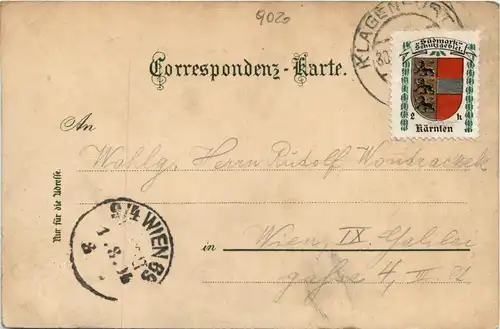 9020
KLAGENFURT
30
Südmark-
Schutzgebiet.
2 h
Kärnten
Correspondenz-Karte.
An
Wohlg. Herrn Rudolf Wondraczek
Nur für die Adresse.
9/4 WIEN 68
1. 8.
8
in Wien, IX. Galilei
gasse 4, II